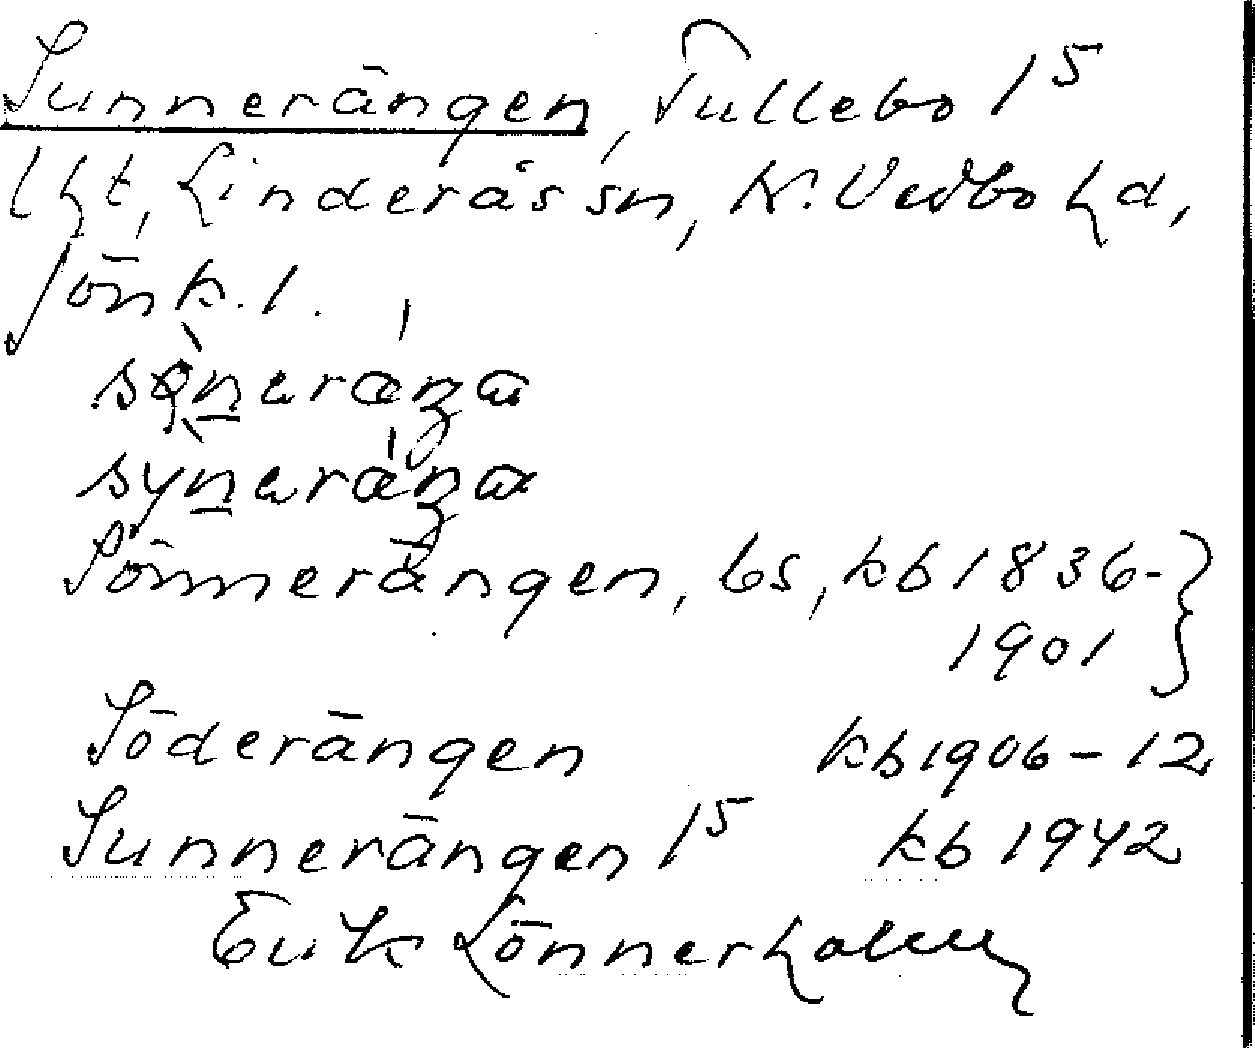 Sunnerängen, Tullebo 1⁵
lht, Linderås sn, N. Vedbo hd,
Jönk. l.
synaräŋa
Sönnerängen, bs, kb 1836-
1901
Söderängen kb 1906-12
Sunnerängen 1⁵ kb 1942
Erik Lönnerholm